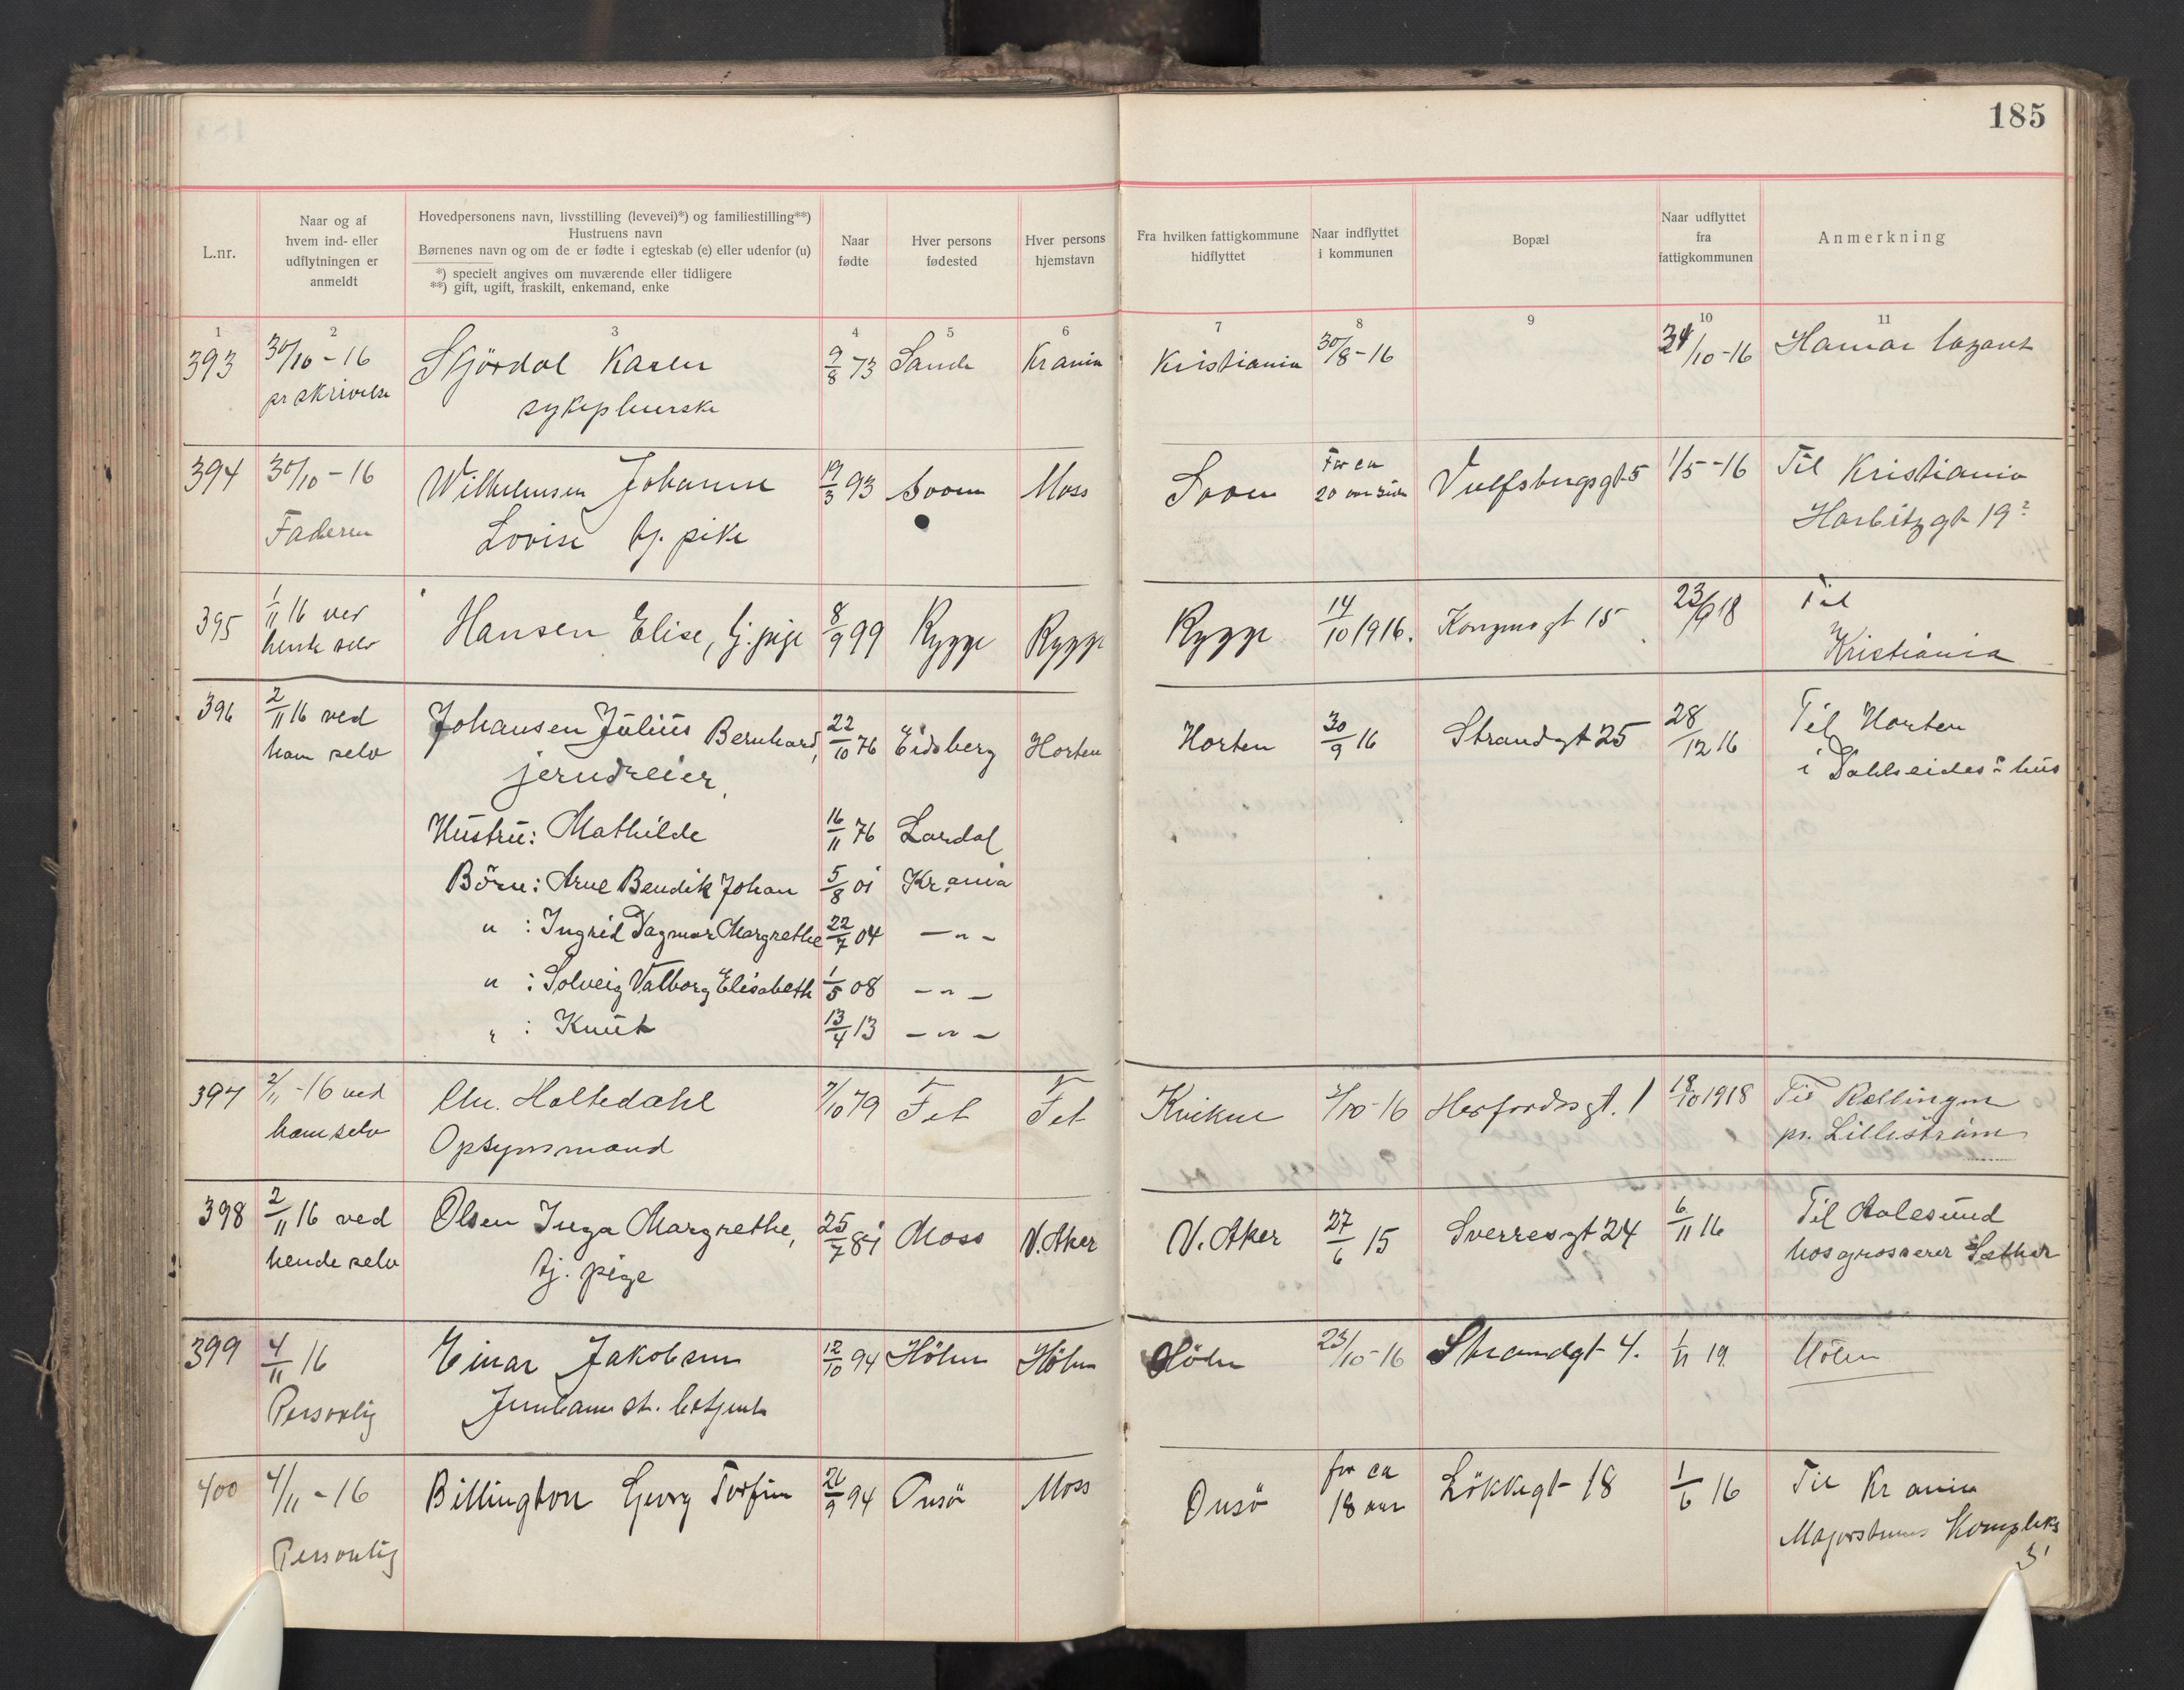 185
L.nr.
Naar og af
hvem ind- eller
udflytningen er
anmeldt
Hovedpersonens navn, livsstilling (levevei)*) og familiestilling**)
Hustruens navn
Børnenes navn og om de er fødte i egteskab (e) eller udenfor (u)
*) specielt angives om nuværende eller tidligere
**) gift, ugift, fraskilt, enkemand, enke
Naar
fødte
Hver persons
fødested
Hver persons
hjemstavn
Fra hvilken fattigkommune
hidflyttet
Naar indflyttet
i kommunen
Bopæl
Naar udflyttet
fra
fattigkommunen
Anmerkning
1 2 3 4 5 6 7 8 9 10 11
393 30/10-16 Skjördal Karen 9/8 73 Sande Krania Kristiania 30/8-16 /10-16 Hamar lazaret
pr skrivelse sykepleierske
394 30/10-16 Wilhelmsen Johanne 19/3 93 Soon Moss Soon For ca Vulfsbergsgt 5 1/5-16 Til Kristiania
20 aar siden
Faderen Lovise tj. pike Harbitzgt 19
395 1/11 16 ved Hansen Elise, tj. pige 8/9 99 Rygge Rygge Rygge 14/10 1916. Kongensgt 15 23/9 18 Til
hende selv Kristiania
396 2/11 16 ved Johansen Julius Bernhard, 22/10 76 Eidsberg Horten Horten 30/9 16 Strandgt 25 28/12 16 Til Horten
ham selv jerndreier, i Dahlseides hus
Hustru: Mathilde 16/11 76 Lardal
Börn: Arne Bendik Johan 5/8 01 Kr.ania
" : Ingrid Dagmar Margrethe 22/7 04 — " —
" : Solveig Valborg Elisabeth 1/5 08 — " —
" : Knut 13/4 13 — " —
397 2/11-16 ved Chr. Holtedahl 7/10 79 Fet Fet Kvikne 2/10-16 Herfordsgt. 1 18/10 1918 Til Rællingen
ham selv Opsynsmand pr. Lilleström
398 2/11 16 ved Olsen Inga Margrethe, 25/7 81 Moss V. Aker V. Aker 27/6 15 Sverresgt 24 6/11 16 Til Aalesund
hende selv tj. pige hos grosserer Sæther
399 4/11 16 Einar Jakobsen 12/10 94 Hölen Hölen Hölen 23/10-16 Strandgt 4. 1/11 19. Hölen
Personlig Jernbanest. betjent
400 4/11-16 Billington Georg Torfin 26/9 94 Onsö Moss Onsö for ca Lökkegt 18 1/6 16 Til Krania
18 aar
Personlig Majorstuens Kompleks
3'